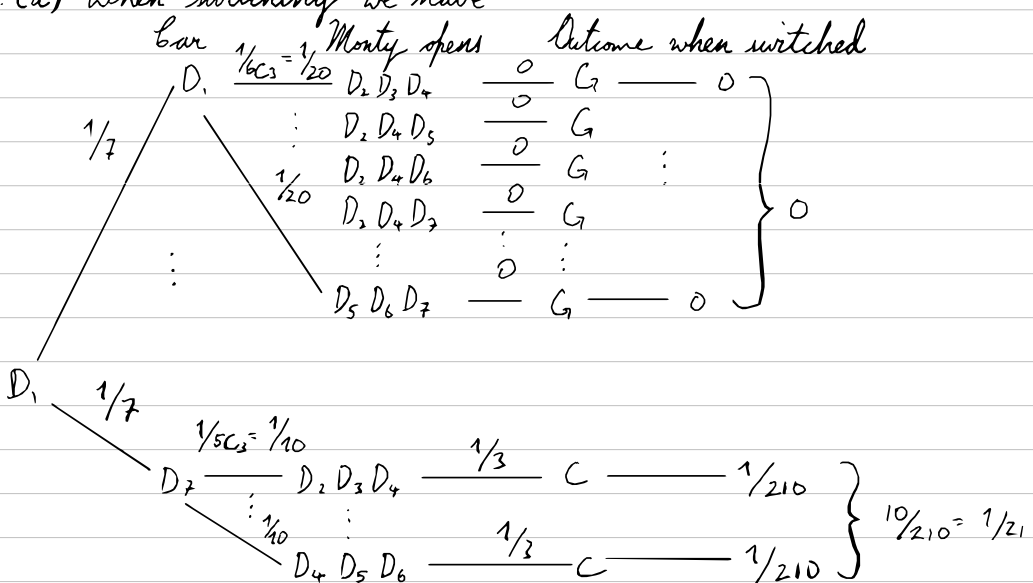 (a) When switching we have
Car Monty opens Outcome when switched
D₁ 1/6C3 = 1/20 D₂ D₃ D₄ 0 G 0
1/7 ⋮ D₂ D₄ D₅ 0 G
1/20 D₂ D₄ D₆ 0 G ⋮ 0
D₂ D₄ D₇ 0 G
⋮ ⋮ 0 ⋮ ⋮
D₅ D₆ D₇ G 0
D₁ 1/7
1/5C3 = 1/10
D₇ D₂ D₃ D₄ 1/3 C 1/210
⋮ 1/10 ⋮ 10/210 = 1/21
D₄ D₅ D₆ 1/3 C 1/210